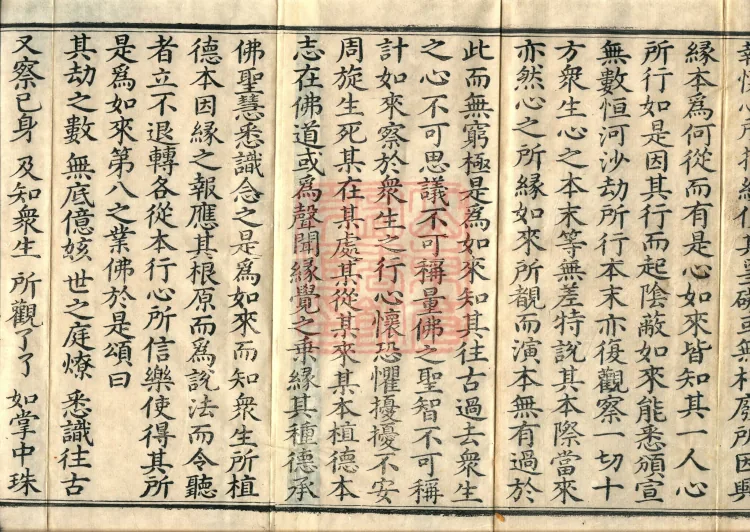 所因興
緣本爲何從而有是心如來皆知其一人心
所行如是因其行而起陰蔽如來能悉頒宣
無數恒河沙劫所行本末亦復觀察一切十
方衆生心之本末等無差特說其本際當來
亦然心之所緣如來所覩而演本無有過於
此而無窮極是爲如來知其往古過去衆生
之心不可思議不可稱量佛之聖智不可稱
計如來察於衆生之行心懷恐懼擾擾不安
周旋生死其在某處某從其來某本植德本
志在佛道或爲聲聞緣覺之乗緣其種德承
佛聖慧悉識念之是爲如來而知衆生所植
德本因緣之報應其根原而爲說法而令聽
者立不退轉各從本行心所信樂使得其所
是爲如來第八之業佛於是頌曰
其劫之數 無底億姟 世之庭燎 悉識往古
又察已身 及知衆生 所觀了了 如掌中珠